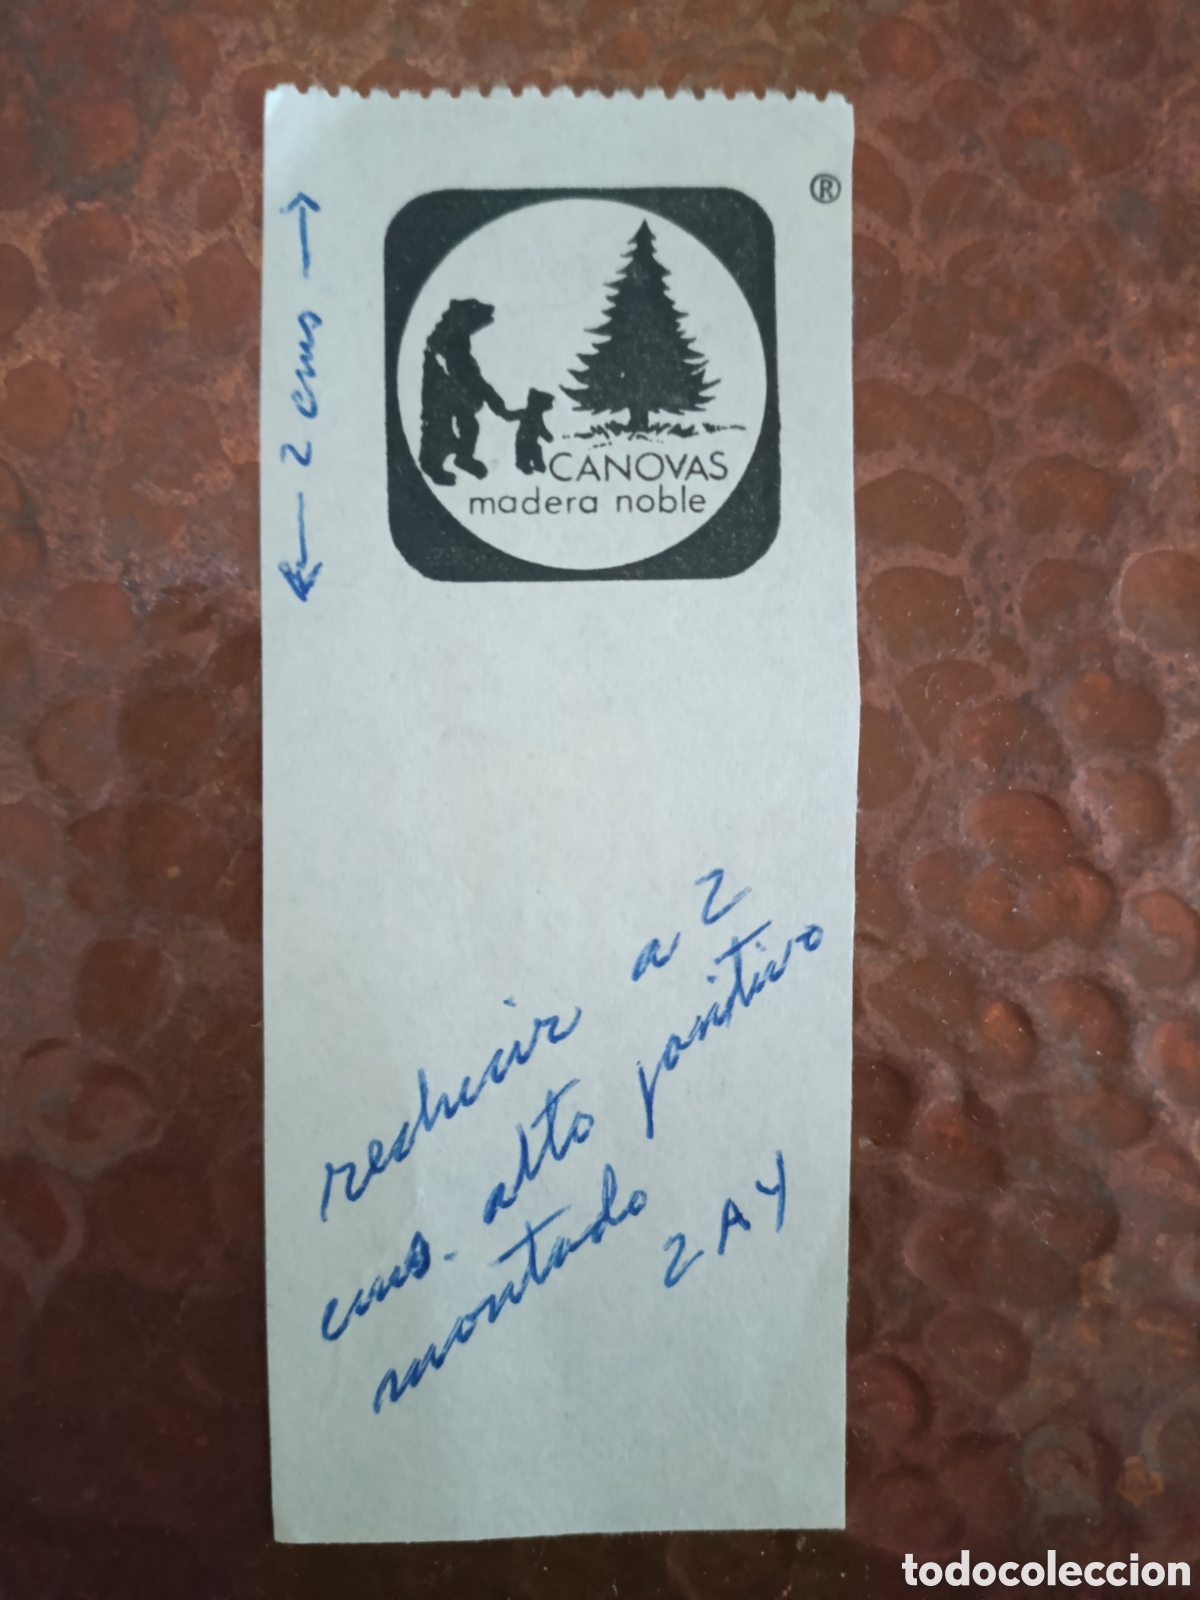 ®
← 2 cms →
CANOVAS
madera noble
reducir a 2
cms. alto positivo
montado
2 A Y
todocoleccion